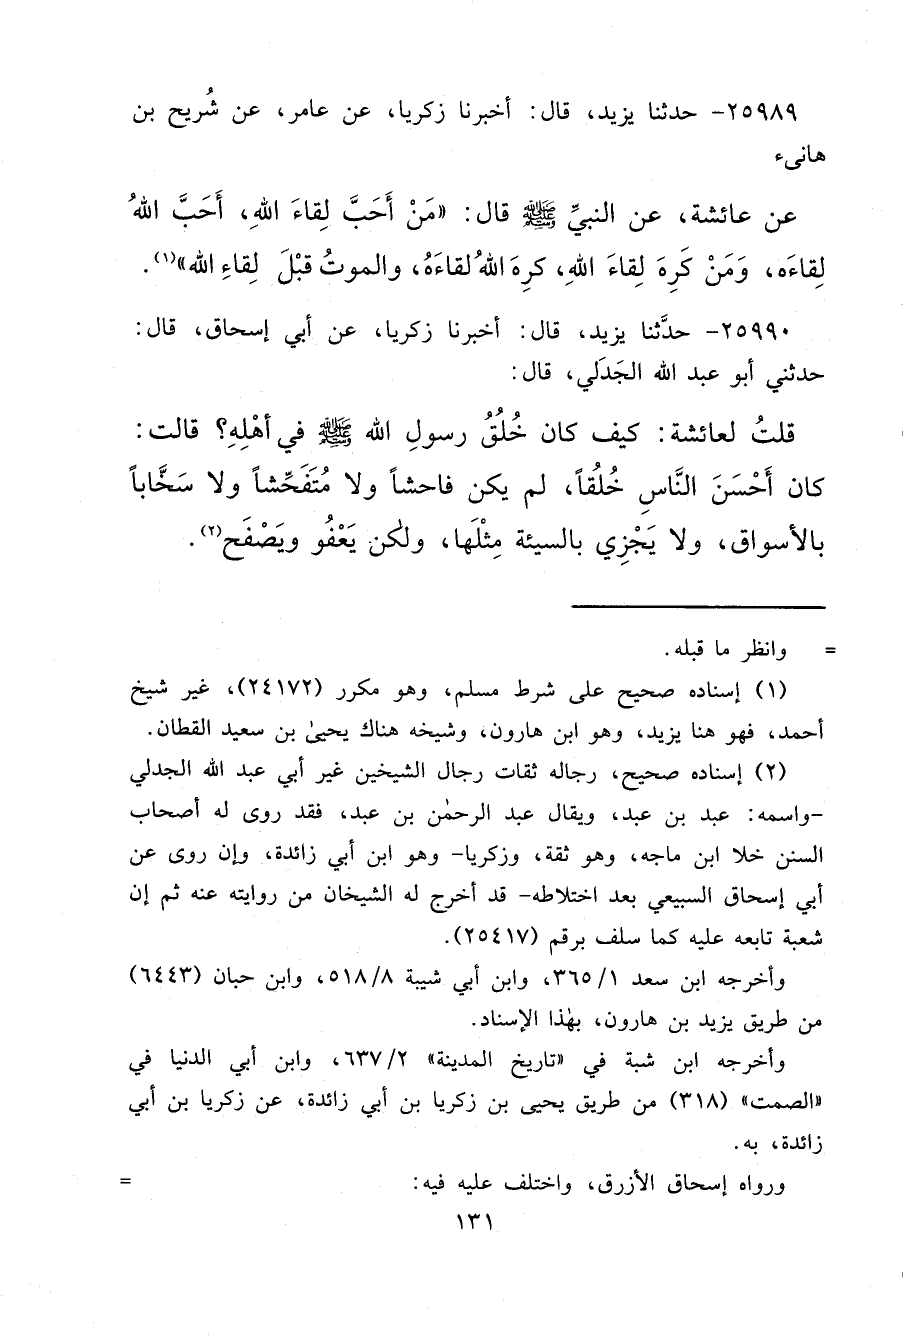 ٢٥٩٨٩- حدثنا يزيد، قال: أخبرنا زكريا، عن عامر، عن شُريح بن
هانىء
عن عائشة، عن النبيِّ ﷺ قال: «مَنْ أَحَبَّ لِقاءَ اللهِ، أَحَبَّ اللهُ
لِقاءَه، وَمَنْ كَرِهَ لِقاءَ اللهِ، كرِهَ اللهُ لقاءَهُ، والموتُ قبْلَ لِقاءِ الله»(١).
٢٥٩٩٠- حدَّثنا يزيد، قال: أخبرنا زكريا، عن أبي إسحاق، قال:
حدثني أبو عبد الله الجَدَلي، قال:
قلتُ لعائشة: كيف كان خُلُقُ رسولِ الله ﷺ في أهْلِهِ؟ قالت:
كان أَحْسَنَ النَّاسِ خُلُقاً، لم يكن فاحشاً ولا مُتَفَحِّشاً ولا سَخَّاباً
بالأسواق، ولا يَجْزِي بالسيئة مِثْلَها، ولٰكن يَعْفُو ويَصْفَح(٢).
= وانظر ما قبله.
(١) إسناده صحيح على شرط مسلم، وهو مكرر (٢٤١٧٢)، غير شيخ
أحمد، فهو هنا يزيد، وهو ابن هارون، وشيخه هناك يحيىٰ بن سعيد القطان.
(٢) إسناده صحيح، رجاله ثقات رجال الشيخين غير أبي عبد الله الجدلي
-واسمه: عبد بن عبد، ويقال عبد الرحمٰن بن عبد، فقد روى له أصحاب
السنن خلا ابن ماجه، وهو ثقة، وزكريا- وهو ابن أبي زائدة، وإن روى عن
أبي إسحاق السبيعي بعد اختلاطه- قد أخرج له الشيخان من روايته عنه ثم إن
شعبة تابعه عليه كما سلف برقم (٢٥٤١٧).
وأخرجه ابن سعد ٣٦٥/١، وابن أبي شيبة ٥١٨/٨، وابن حبان (٦٤٤٣)
من طريق يزيد بن هارون، بهٰذا الإسناد.
وأخرجه ابن شبة في «تاريخ المدينة» ٦٣٧/٢، وابن أبي الدنيا في
«الصمت» (٣١٨) من طريق يحيى بن زكريا بن أبي زائدة، عن زكريا بن أبي
زائدة، به.
ورواه إسحاق الأزرق، واختلف عليه فيه: =
١٣١